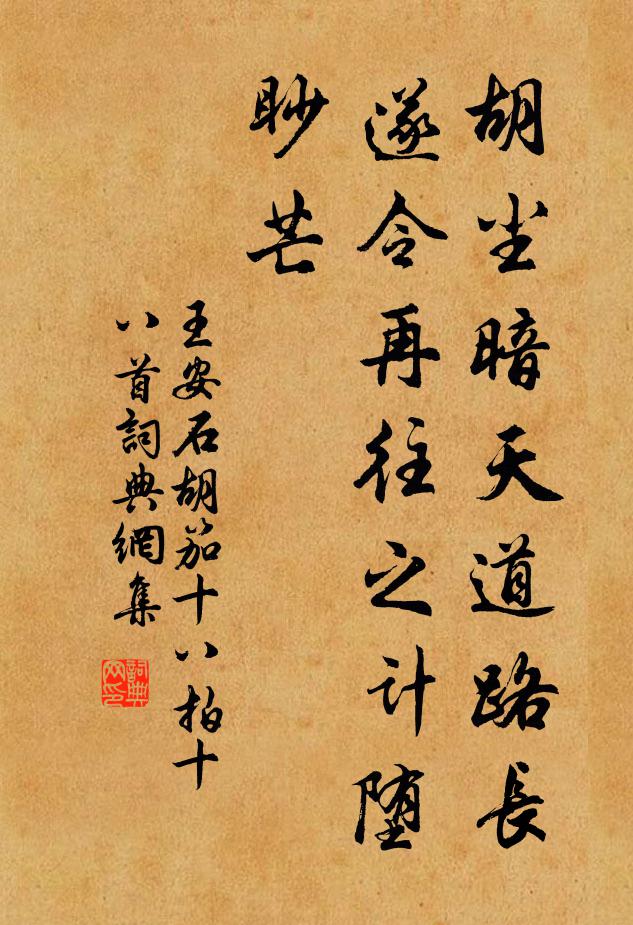 胡尘暗天道路長
遂令再往之计堕
眇芒
王安石胡笳十八拍十
八首詞典網集
詞典
网印